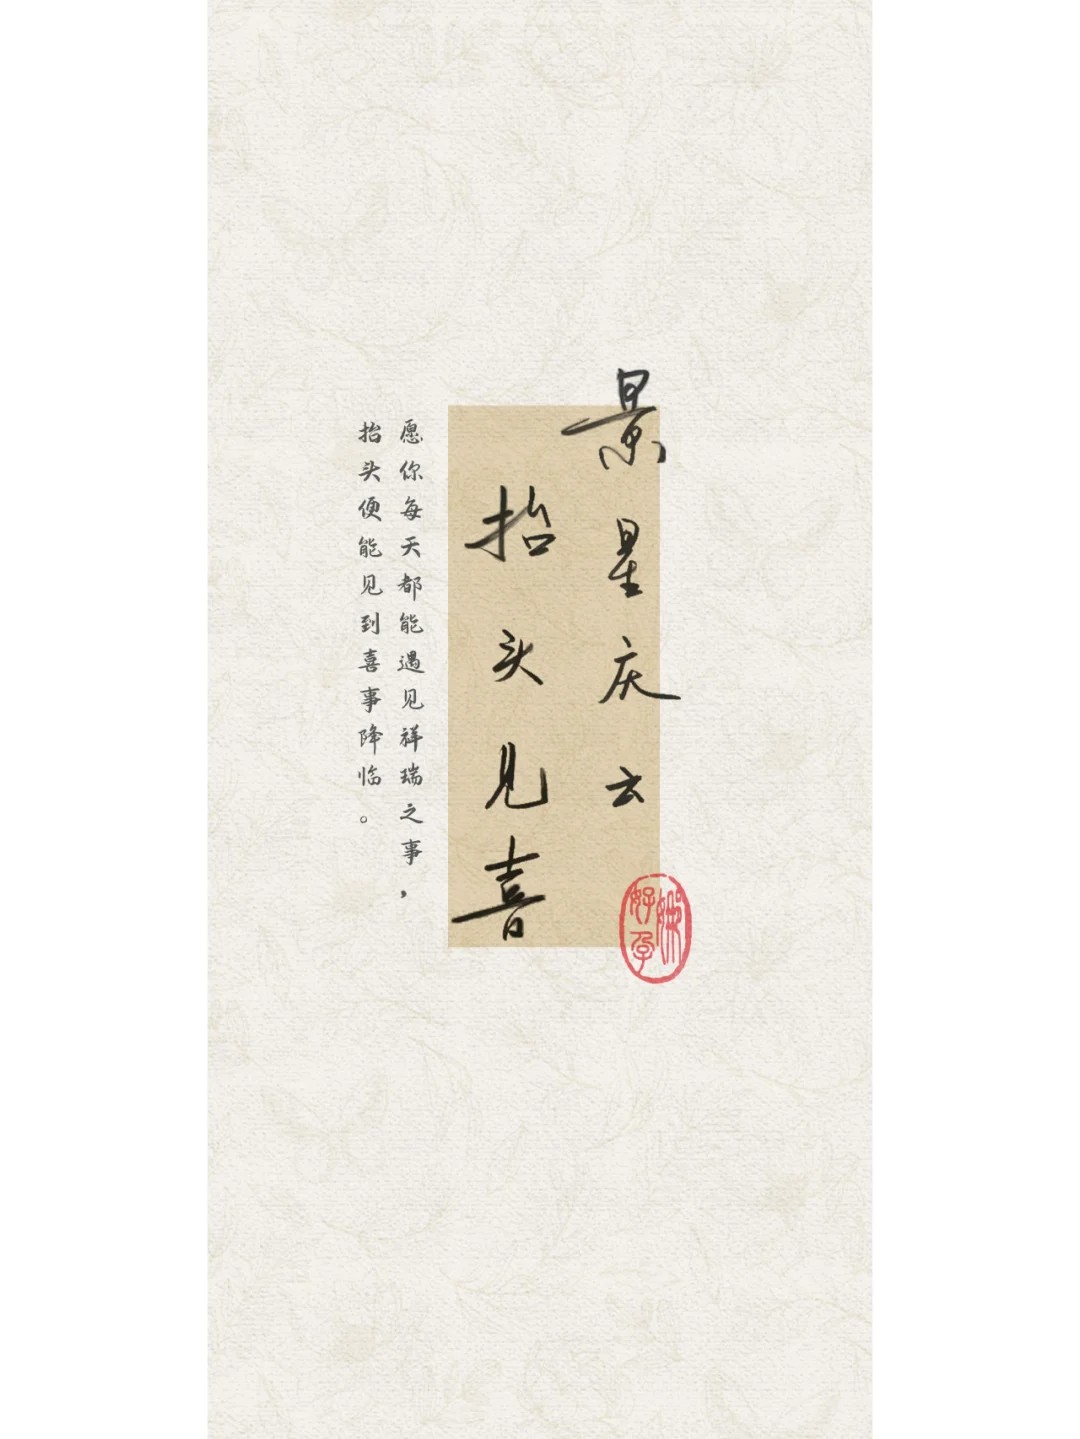 景星庆云
抬头见喜
愿你每天都能遇见祥瑞之事，
抬头便能见到喜事降临。
好孕